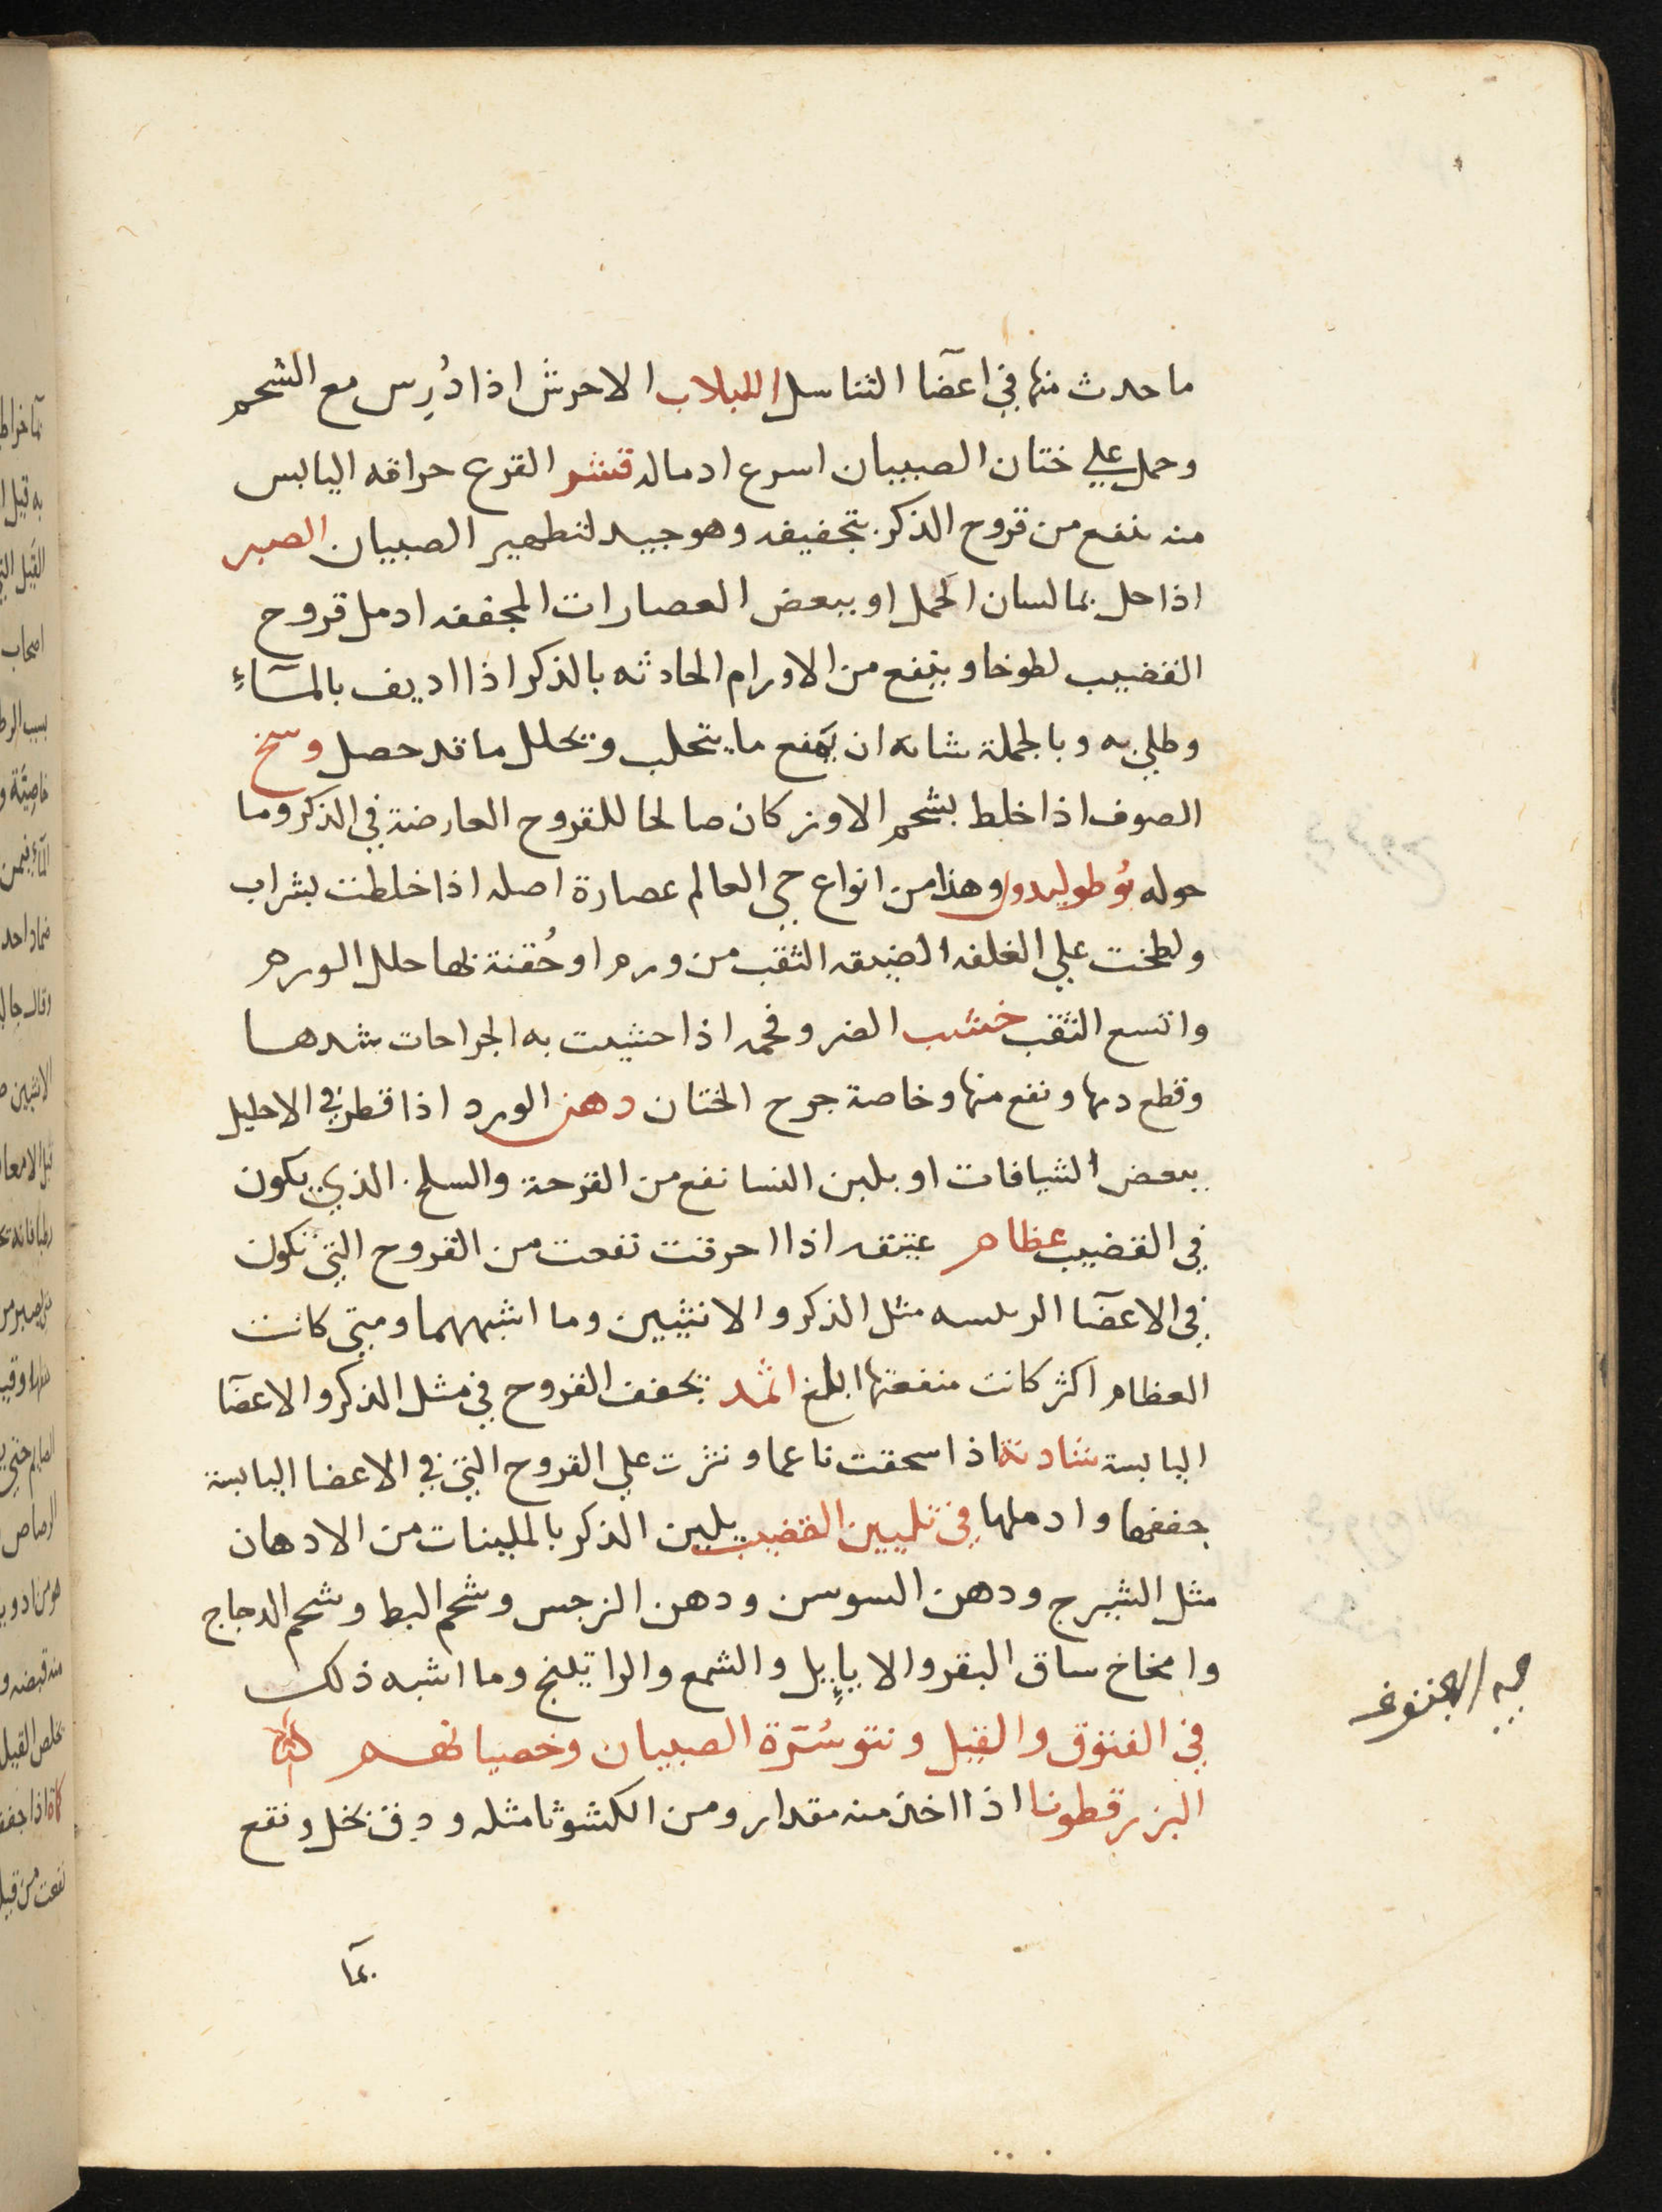 ما حدث منها في اعضآ التناسل اللبلاب الاحرش اذا دُرِس مع الشحم
وحمل علي ختان الصبيان اسرع ادماله قشر القرع حراقه اليابس
منه ينفع من قروح الذكر بتجفيفه وهو جيد لتطهير الصبيان الصبر
اذا حل بما لسان الحمل او ببعض العصارات المجففه ادمل قروح
القضيب لطوخا وينفع من الاورام الحادثه بالذكر اذا اديف بالمآءِ
وطلي به وبالجملة شانه ان يمنع ما يتحلب ويحلل ما قد حصل وسخ
الصوف اذا خلط بشحم الاوز كان صالحا للقروح العارضة في الذكر وما
حوله بوطوليدون وهذا من انواع حي العالم عصارة اصله اذا خلطت بشراب
ولطخت علي الغلفه الضيقه الثقب من ورم او حُقنة بها حلل الورم
واتسع الثقب خشب الضرو فحمه اذا حشيت به الجراحات شدها
وقطع دمها ونفع منها وخاصة جرح الختان دهن الورد اذا قطر في الاحليل
ببعض الشيافات او بلبن النسا نفع من القرحة والسلخ الذي يكون
في القضيب عظام عتيقه اذا احرقت نفعت من القروح التي تكون
في الاعضآ الرىىسه مثل الذكر والانثيين وما اشبههما ومتي كانت
العظام اكثر كانت منفعتها ابلغ اثمد يجفف القروح في مثل الذكر والاعضآ
اليابسة شادنة اذا سحقت ناعما ونثرت علي القروح التي في الاعضا اليابسة
جففها وادملها في تليين القضيب يلين الذكر بالملينات من الادهان
مثل الشيرج ودهن السوسن ودهن النرجس وشحم البط وشحم الدجاج
وامخاخ ساق البقر والايايل والشمع والراتينج وما اشبه ذلك
في الفتوق والقيل ونتو سُرّة الصبيان وخصيانهم
البزرقطونا اذا اخذ منه مقدار ومن الكشوثا مثله ودق نخل ونقع
بمآ